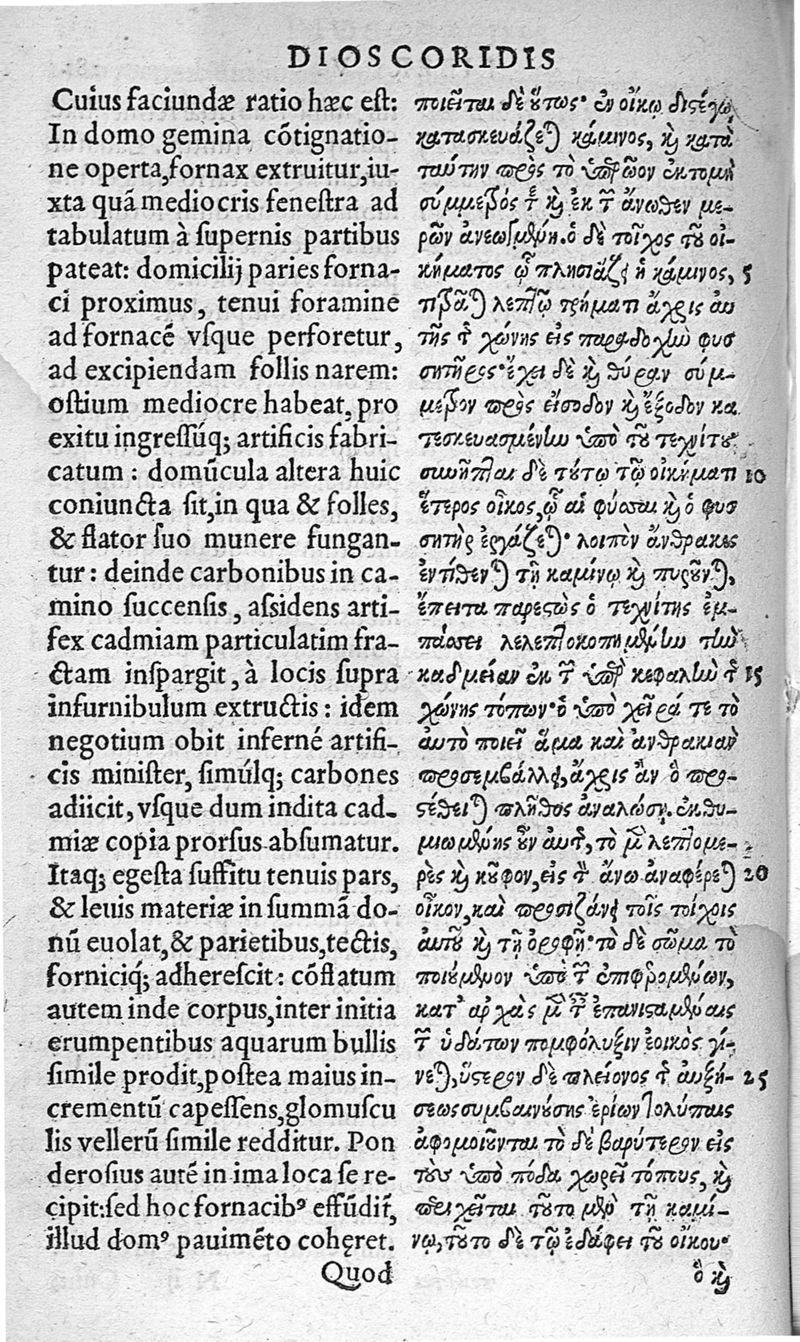 DIOSCORIDIS
Cuius faciundæ ratio hæc est:
In domo gemina cõtignatio-
ne operta, fornax extruitur, iu-
xta quã mediocris fenestra ad
tabulatum à supernis partibus
pateat: domicilij paries forna-
ci proximus, tenui foramine
ad fornacẽ vsque perforetur,
ad excipiendam follis narem:
ostium mediocre habeat, pro
exitu ingressúq; artificis fabri-
catum: domũcula altera huic
coniuncta sit, in qua & folles,
& flator suo munere fungan-
tur: deinde carbonibus in ca-
mino succensis, assidens arti-
fex cadmiam particulatim fra-
ctam inspargit, à locis supra
infurnibulum extructis: idem
negotium obit inferné artifi-
cis minister, simúlq; carbones
adiicit, vsque dum indita cad-
miæ copia prorsus absumatur.
Itaq; egesta suffitu tenuis pars,
& leuis materiæ in summã do-
nũ euolat, & parietibus, tectis,
forniciq; adherescit: cõflatum
autem inde corpus, inter initia
erumpentibus aquarum bullis
simile prodit, postea maius in-
crementũ capessens, glomuscu
lis vellerũ simile redditur. Pon
derosius autẽ in ima loca se re-
cipit: sed hoc fornacibꝰ effũdit̃,
illud domꝰ pauimẽto cohęret.
Quod
ποιεῖται δὲ οὕτως· ἐν οἴκῳ διστέγῳ
κατασκευάζεται κάμινος, καὶ κατὰ
ταύτην πρὸς τὸ ὑπερῷον ἐκτομὴ
σύμμετρός τε καὶ ἐκ τῶν ἄνωθεν με-
ρῶν ἀνεωγμένη. ὁ δὲ τοῖχος τοῦ οἰ-
κήματος ᾧ πλησιάζει ἡ κάμινος, 5
τιτρᾶται λεπτῷ τρήματι ἄχρις αὐ
τῆς τῆς χώνης εἰς παραδοχὴν φυσ
σητῆρος· ἔχει δὲ καὶ θύραν σύμ-
μετρον πρὸς εἴσοδον καὶ ἔξοδον κα
τεσκευασμένην ὑπὸ τοῦ τεχνίτου·
συνῆπται δὲ τούτῳ τῷ οἰκήματι 10
ἕτερος οἶκος, ᾧ αἱ φύσσαι καὶ ὁ φυσ
σητὴρ ἐργάζεται· λοιπὸν ἄνθρακες
ἐντίθενται τῇ καμίνῳ καὶ πυροῦνται,
ἔπειτα παρεστὼς ὁ τεχνίτης ἐμ-
πάσσει λελεπτοκοπημένην τὴν
καδμείαν ἐκ τῶν ὑπὲρ κεφαλὴν τῆς 15
χώνης τόπων· ὁ ὑπὸ χεῖρά τε τὸ
αὐτὸ ποιεῖ ἅμα καὶ ἀνθρακιὰν
προσεμβάλλει, ἄχρις ἂν ὃ προ-
στέθειται πλῆθος ἀναλώσῃ. ἐκθυ-
μιωμένης οὖν αὐτῆς, τὸ μὲν λεπτομε-
ρὲς καὶ κοῦφον, εἰς τὸν ἄνω ἀναφέρεται 20
οἶκον, καὶ προσιζάνει τοῖς τοίχοις
αὐτοῦ καὶ τῇ ὀροφῇ· τὸ δὲ σῶμα τὸ
ποιούμενον ὑπὸ τῶν ἐπιφερομένων,
κατ' ἀρχὰς μὲν τῶν ἐπανισταμέναις
τῶν ὑδάτων πομφόλυξιν ἐοικὸς γί-
νεται, ὕστερον δὲ πλείονος τῆς αὐξή- 25
σεως συμβαινούσης ἐρίων τολύπαις
ἀφομοιοῦνται τὸ δὲ βαρύτερον εἰς
τοὺς ὑπὸ πόδα χωρεῖ τόπους, καὶ
περιχεῖται τοῦτο μὲν τῇ καμί-
νῳ, τοῦτο δὲ τῷ ἐδάφει τοῦ οἴκου·
ὃ καὶ